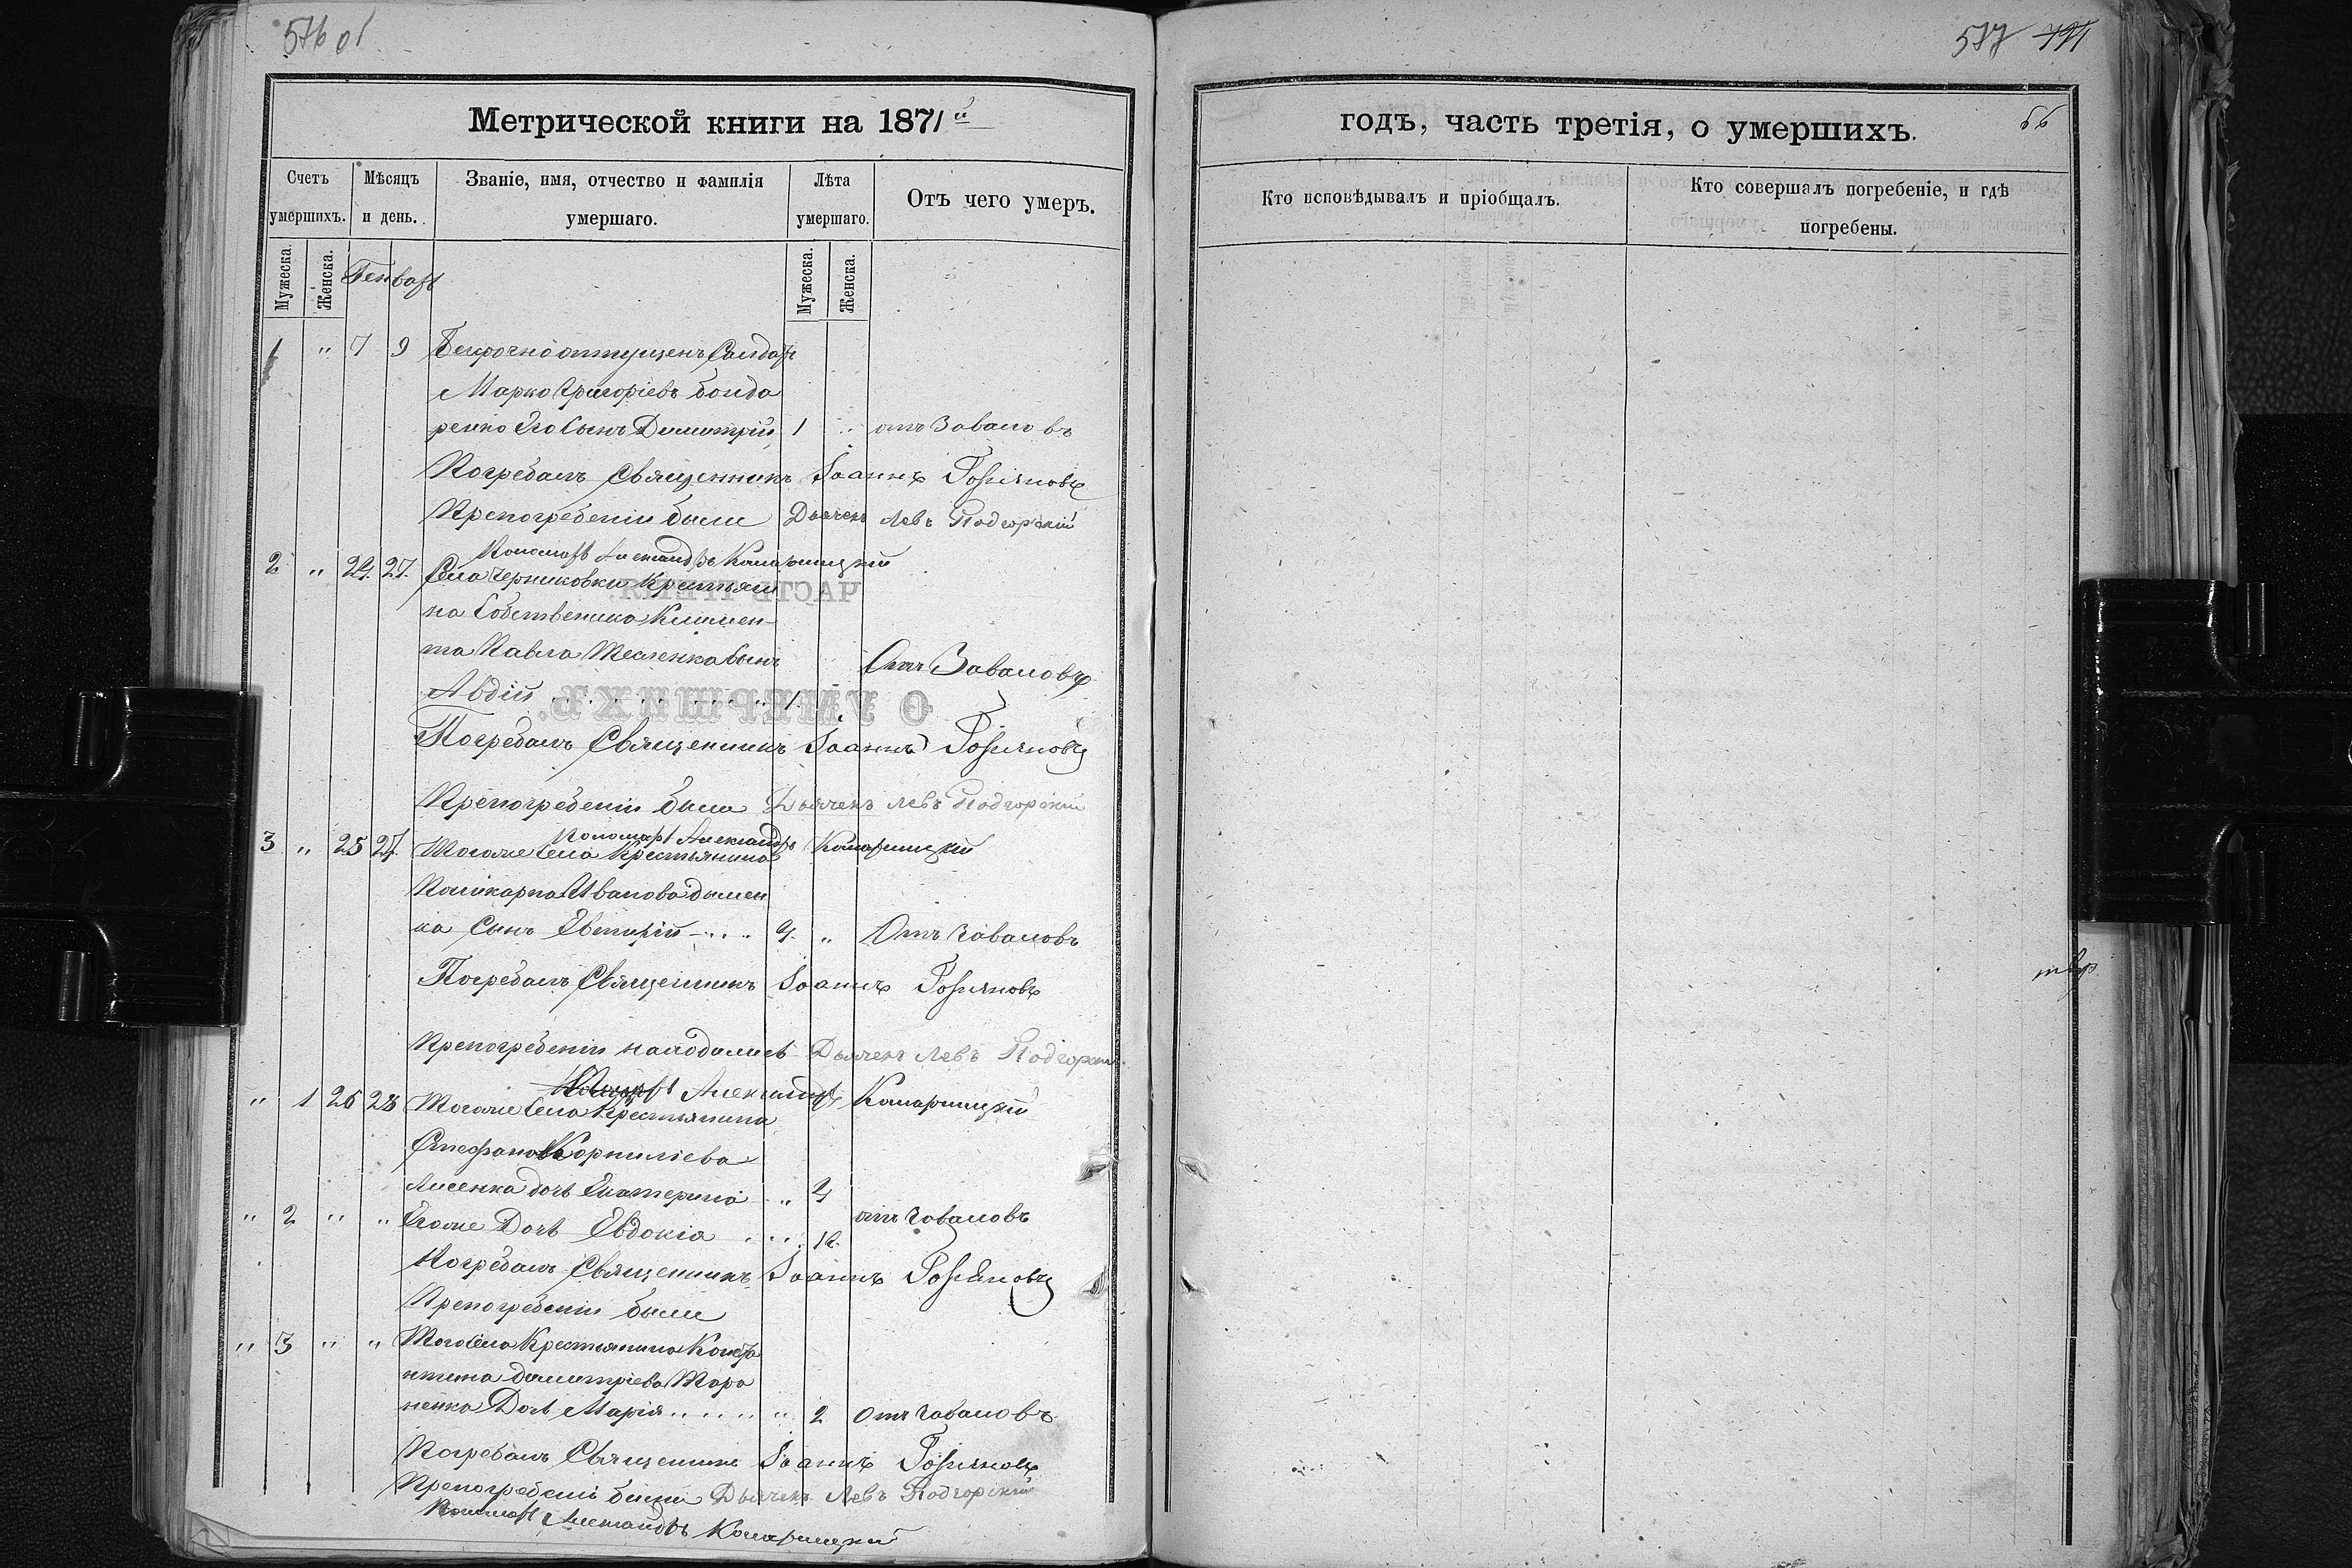 576 об
Метрической книги на 1871й
Счетъ умершихъ.
Мѣсяцъ и день.
Званіе, имя, отчество и фамилія умершаго.
Лѣта умершаго.
Отъ чего умеръ.
Мужеска.
Женска.
Генварь
Мужеска.
Женска.
1 " 7 9 Безсрочно отпущенъ Солдатъ
Марко Григоріевъ Бонда
ренко Его Сынъ Димитрій 1 " отъ Заваловъ
Погребалъ Священникъ Іоаннъ
Препогребеніи были Дьячекъ Левъ Подгорскій
Пономарь Александръ Комарницкій
2 " 24. 27. Села Черниковки Крестьяни
на Собственика Климен-
та Павла Тесленка Сынъ
Отъ Заваловъ
Авдій 1. "
Погребалъ Священникъ Іоаннъ
Препогребеніи были Дьячекъ Левъ Подгорскій
Пономарь Александръ Комарницкій
3 " 25 27. Тогоже Села Крестьянина
Поликарпа Иванова
ка Сынъ 4. " Отъ Заваловъ
Погребалъ Священникъ Іоаннъ
Препогребеніи находились Дьячекъ Левъ Подгорскій
Александръ Комарницкій
" 1 26 28 Тогоже Села Крестьянина
Стефана Корниліева
Лисенка дочь Екатерина " 4
отъ Заваловъ
" 2 " " Егоже Дочь Евдокія 12.
Погребалъ Священникъ Іоаннъ
Препогребеніи были
" 3 " " Того Села Крестьянина Конста
нтина Димитріева Тара
ненка Дочь Марія " 2 Отъ Заваловъ
Погребалъ Священникъ Іоаннъ
Препогребеніи были Дьячекъ Левъ Подгорскій
Пономарь Александръ Комарницкій
577
годъ, часть третія, о умершихъ.
66
Кто исповѣдывалъ и пріобщалъ.
Кто совершалъ погребеніе, и гдѣ погребены.